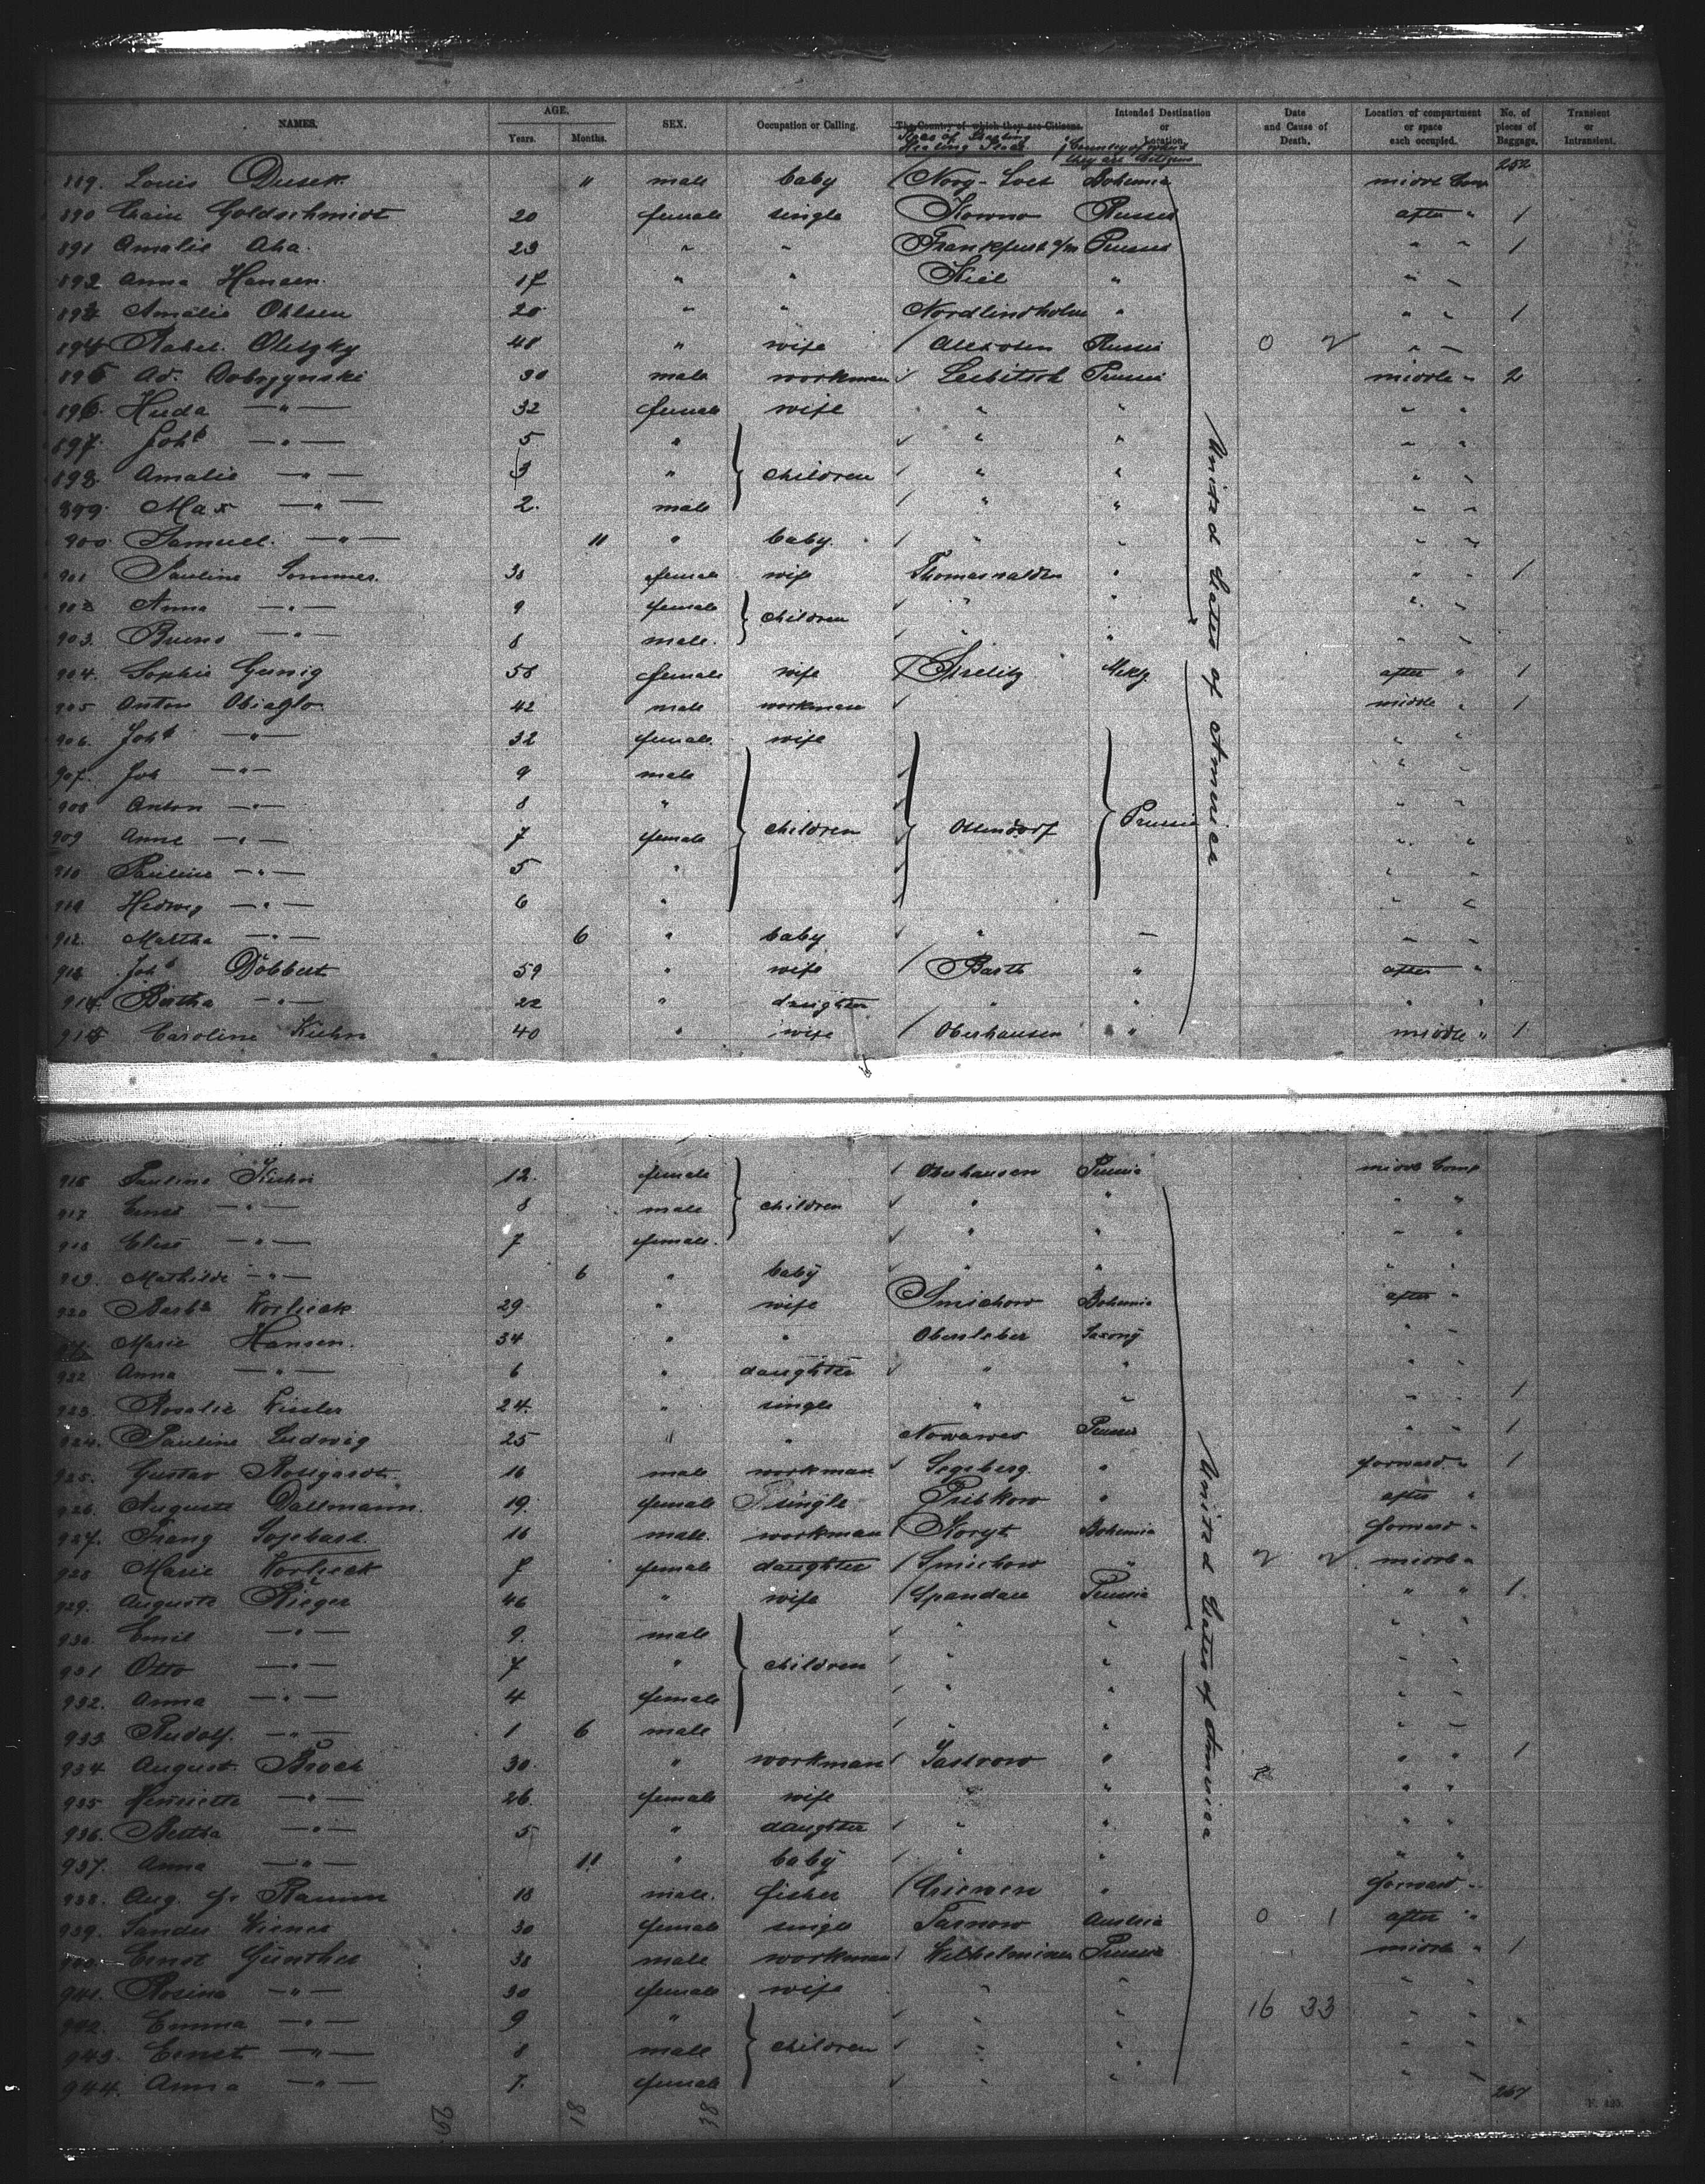 NAMES. AGE. Years. Months. SEX. Occupation or Calling. The Country of which they are Citizens. Intended Destination or Location. Date and Cause of Death. Location of compartment or space each occupied. No. of pieces of Baggage. Transient or Intransient.
Country of which they are Citizens
252
889. Louis Dusek " male baby Bohemia middle Comp
890 Goldschmidt 20 female single Kowno Russia after " 1
891 Amalie Aha 23 " " Frankfurt a/m Prussia " " 1
892 Anna Hansen 17 " " Kiel " " "
893 Amalie Ohlsen 20 " " Nordlindholm " " " 1
894 Rahel Olitzky 48 " wife Russia 0 2 " "
895 Ad. Dobrzynski 30 male workman Leibitsch Prussia middle " 2
896. Huda " 32 female wife " " " "
897. Joha " 5 " " " " "
898. Amalie " 3 " children " " " "
899. Max " 2. male " " " "
900. Samuel " 11 " baby " " " "
901 Pauline Sommer 38 female wife Thomaswalden " " " 1
902 Anna " 9 female children " " " "
903. Bruno " 8 male. " " " "
904. Sophie Gennig 58 female wife Strelitz Mklg. after " 1
905 Anton Obiaglo 42 male workman middle " 1
906. Joha " 32 female. wife " "
907. Joh " 9 male " "
908 Anton " 8 " " "
909 Anna " 7 female children Ottendorf Prussia " "
910 Pauline " 5 " " "
911 Hedwig " 6 " " "
912. Martha " 6 " baby " " " "
913 Joha Döbbert 59 " wife Barth " after "
914 Bertha " 22 " daughter " " " "
915 Caroline Kuhn 40 " wife Oberhausen " middle " 1
United States of America
916 Pauline Kuhn 12. female Oberhausen Prussia middle Comp
917 Ernst " 8 male children " " " "
918 Elise " 7 female. " " " "
919. Mathilde " 6 " baby " " " "
920 Barba Korlicek 29 " wife Smichow Bohemia after "
921 Marie Hansen. 34 " " Obersleber Saxony " "
922 Anna " 6 " daughter " " " "
923. Rosalie Kissler 24. " single " " " " 1
924. Pauline Ludwig 25 " " Nowawes Prussia " " 1
925. Gustav 16 male workman Segeberg " forward " 1
926. Auguste Dallmann 19. female single Pribkow " after "
927. Franz 16 male. workman Bohemia forward "
928 Marie Korlicek 7 female daughter Smichow " 2 2 middle "
929. Auguste Rieger 46 " wife Spandau Prussia " " 1
930. Emil " 9. male " " " "
931 Otto " 7 " children " " " "
932. Anna " 4 female " " " "
933 Rudolf. " 1 6 male " " " "
934 August Brock 30. " workman Jastrow " " " 1
935 Henriette " 26. female wife " " " "
936. Bertha " 5 " daughter " " " "
937. Anna " 11 " baby " " " "
938. Aug. Ramm 18 male. fisher Criewen " forward "
939. Sander Wiener 30 female single Tarnow Austria 0 1 after "
940. Ernst Günther 38 male workman Wilhelminen Prussia middle " 1
941. Rosina " 30 female wife " " " "
942. Emma " 9 " " " 16 33 " "
943. Ernst " 8 male children " " " "
944. Anna " 7. female " " " "
United States of America
267
29. 18 38